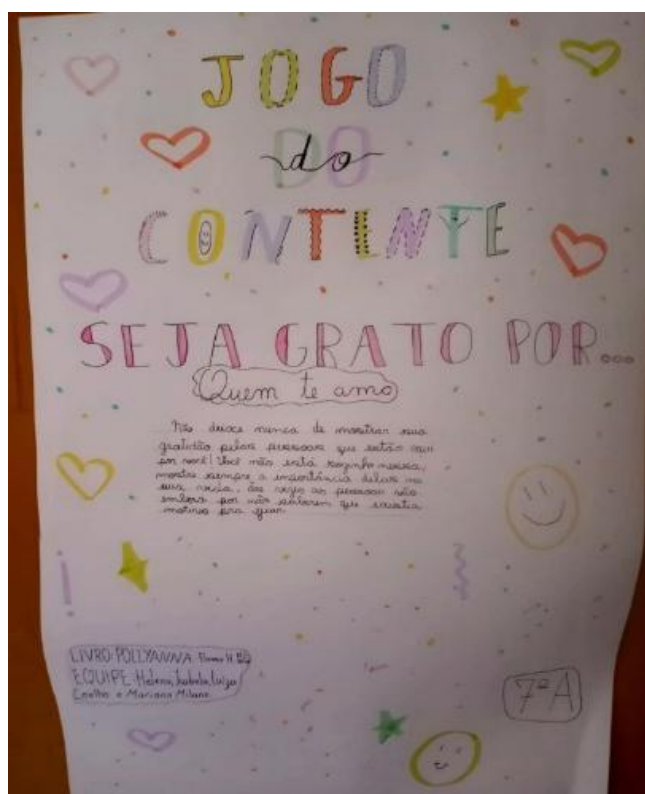 JOGO
do
CONTENTE
SEJA GRATO POR...
Quem te amo
Não deixe nunca de mostrar sua
gratidão pelas pessoas que estão aqui
por você! Você não está sozinho nessa,
mostre sempre a importância delas na
sua vida, às vezes as pessoas vão
embora por não saberem que existia
motivos pra ficar
LIVRO: POLLYANNA
EQUIPE: Helena, Isabela, Luiza
Coelho e Mariana Milane
7ºA